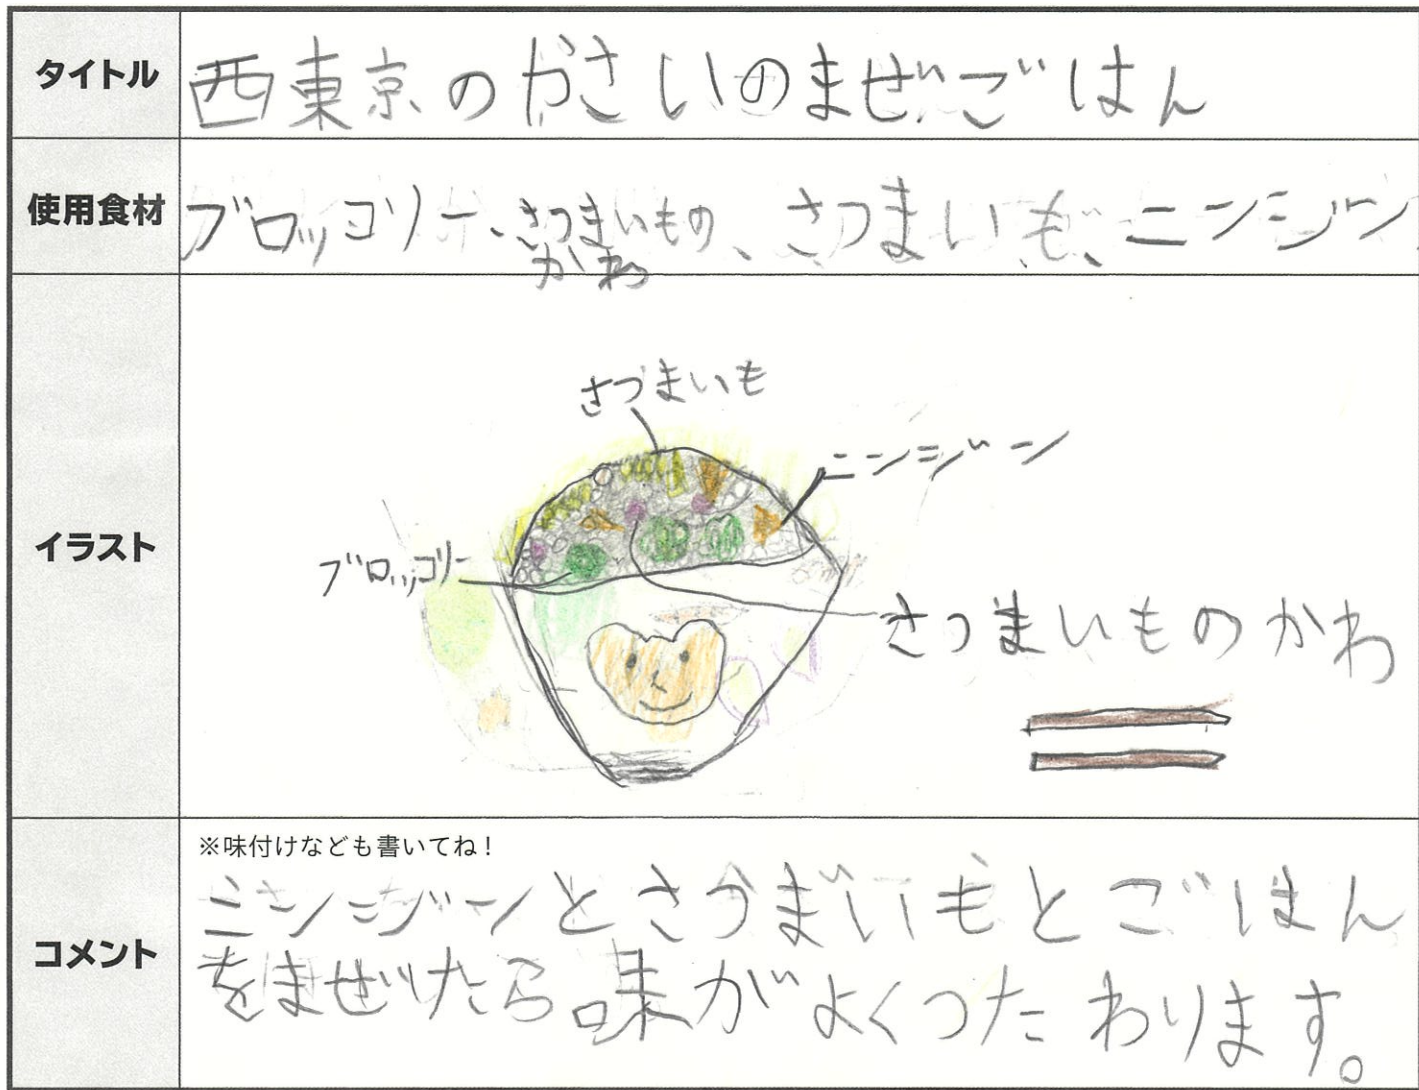 タイトル
西東京のやさいのまぜごはん
使用食材
ブロッコリー、さつまいもの、さつまいも、ニンジン
かわ
イラスト
さつまいも
ニンジン
ブロッコリー
さつまいものかわ
コメント
※味付けなども書いてね!
ニンジンとさつまいもとごはん
をまぜたら味がよくつたわります。